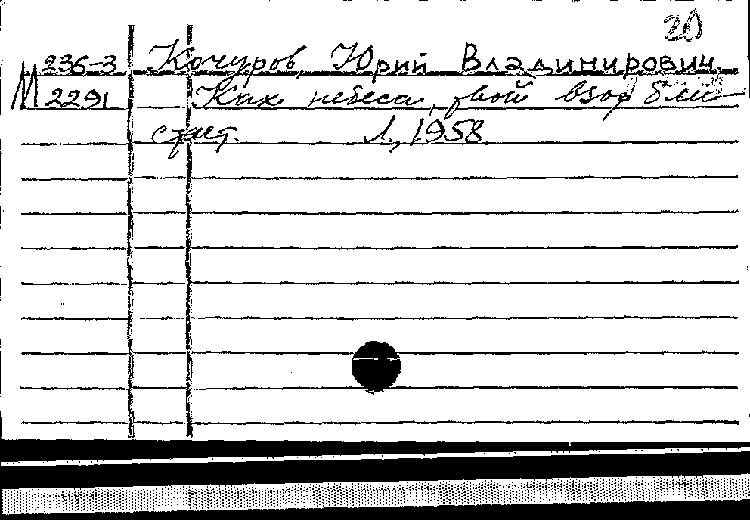 20
236-3 Кочуров, Юрий Владимирович
М 2291 Как небеса, твой взор бли-
стает. Л., 1958